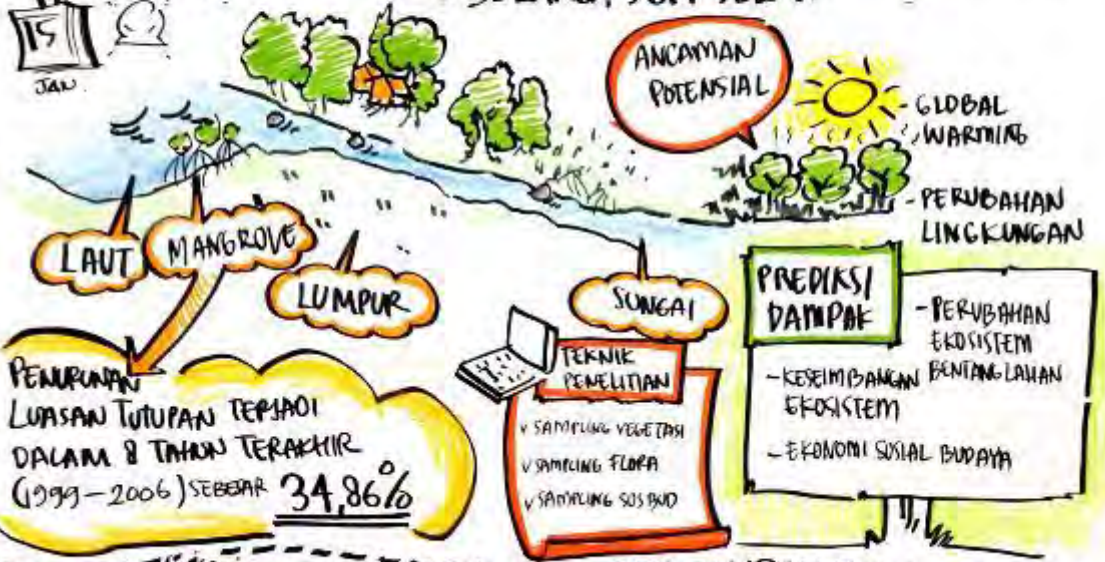 15
JAN
ANCAMAN
POTENSIAL
- GLOBAL
WARMING
- PERUBAHAN
LINGKUNGAN
LAUT
MANGROVE
LUMPUR
SUNGAI
PENURUNAN
LUASAN TUTUPAN TERJADI
DALAM 8 TAHUN TERAKHIR
(1999-2006) SEBESAR 34,86%
TEKNIK
PENELITIAN
v SAMPLING VEGETASI
v SAMPLING FLORA
v SAMPLING SOSBUD
PREDIKSI
DAMPAK
- PERUBAHAN
EKOSISTEM
BENTANG LAHAN
- KESEIMBANGAN
EKOSISTEM
- EKONOMI SOSIAL BUDAYA